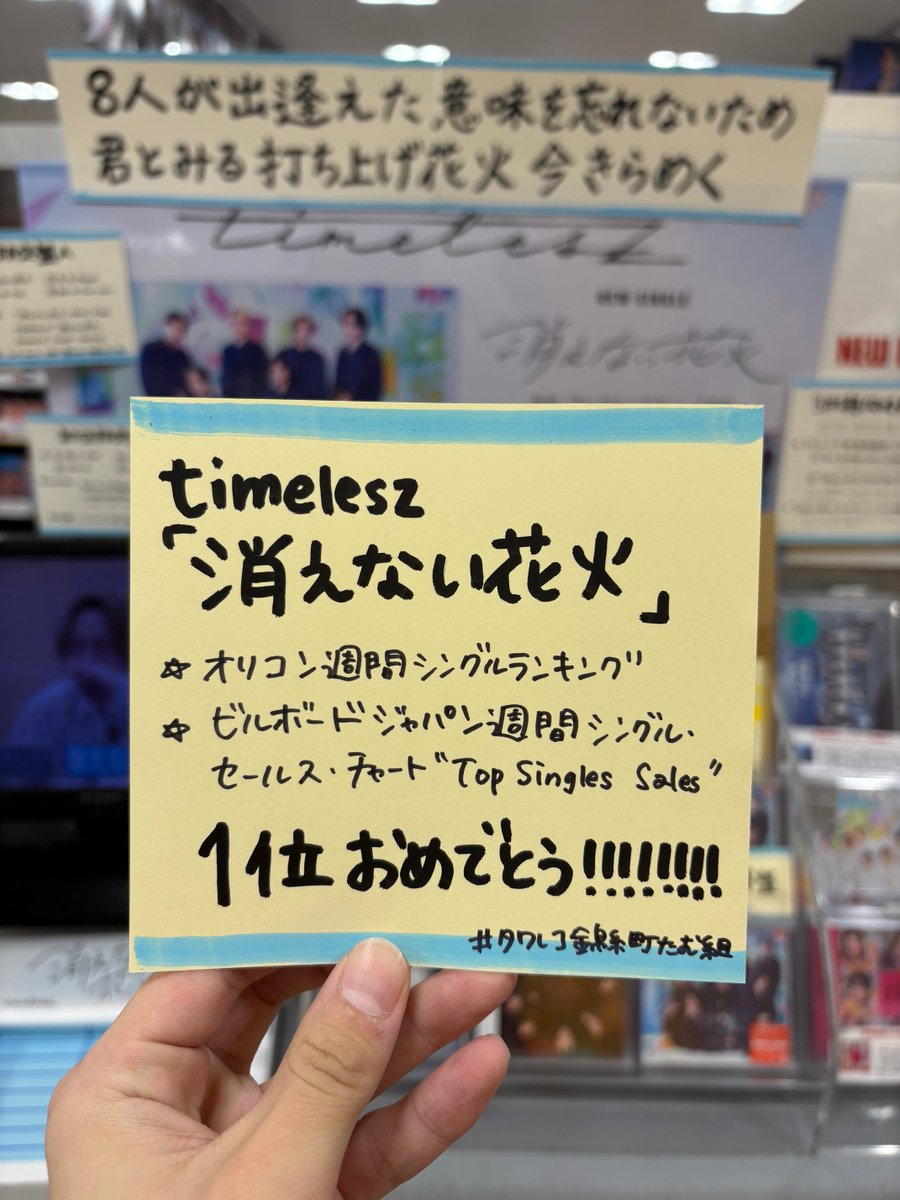 8人が出逢えた意味を忘れないため
君とみる打ち上げ花火 今きらめく
timelesz
NEW SINGLE
消えない花火
NEW
timelesz
「消えない花火」
☆ オリコン週間シングルランキング
☆ ビルボードジャパン週間シングル・
セールス・チャート"Top Singles Sales"
1位おめでとう!!!!!!!!
#タワレコ錦糸町たむ組